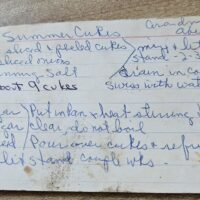 Summer Cukes
Grandm
sliced & peeled cukes
mix & let
sliced onions
stand - 2-3
nning salt
drain in co
bout 9 cukes
with wat
ar Put in pan & heat stirring
gar clear, do not boil
eed Pour over cukes & refr
stand couple wks.